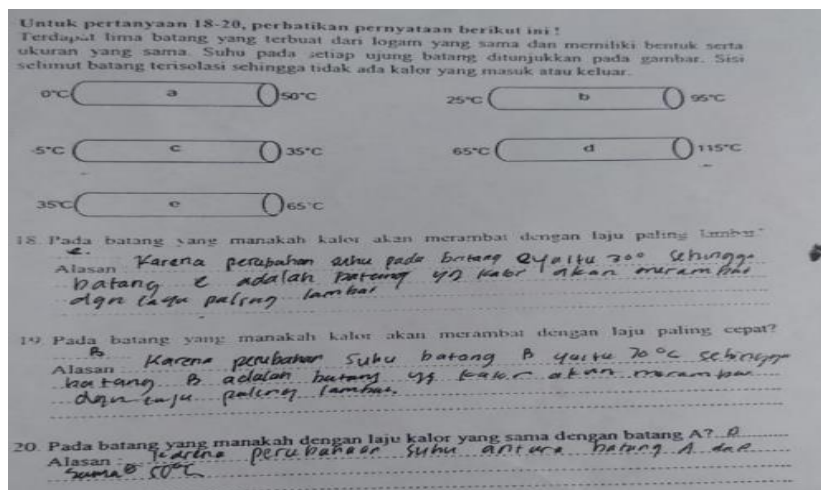 Untuk pertanyaan 18-20, perhatikan pernyataan berikut ini !
Terdapat lima batang yang terbuat dari logam yang sama dan memiliki bentuk serta
ukuran yang sama. Suhu pada setiap ujung batang ditunjukkan pada gambar. Sisi
selimut batang terisolasi sehingga tidak ada kalor yang masuk atau keluar.
0°C a 50°C 25°C b 95°C
-5°C c 35°C 65°C d 115°C
35°C e 65°C
18. Pada batang yang manakah kalor akan merambat dengan laju paling lambat?
e.
Alasan Karena perubahan suhu pada batang e yaitu 30° sehingga
batang e adalah batang yg kalor akan merambat
dgn laju paling lambat
19. Pada batang yang manakah kalor akan merambat dengan laju paling cepat?
B
Alasan Karena perubahan suhu batang B yaitu 70°C sehingga
batang B adalah batang yg kalor akan merambat
dgn laju paling lambat.
20. Pada batang yang manakah dengan laju kalor yang sama dengan batang A? D
Alasan Karena perubahan suhu antara batang A dan
sama 50°C